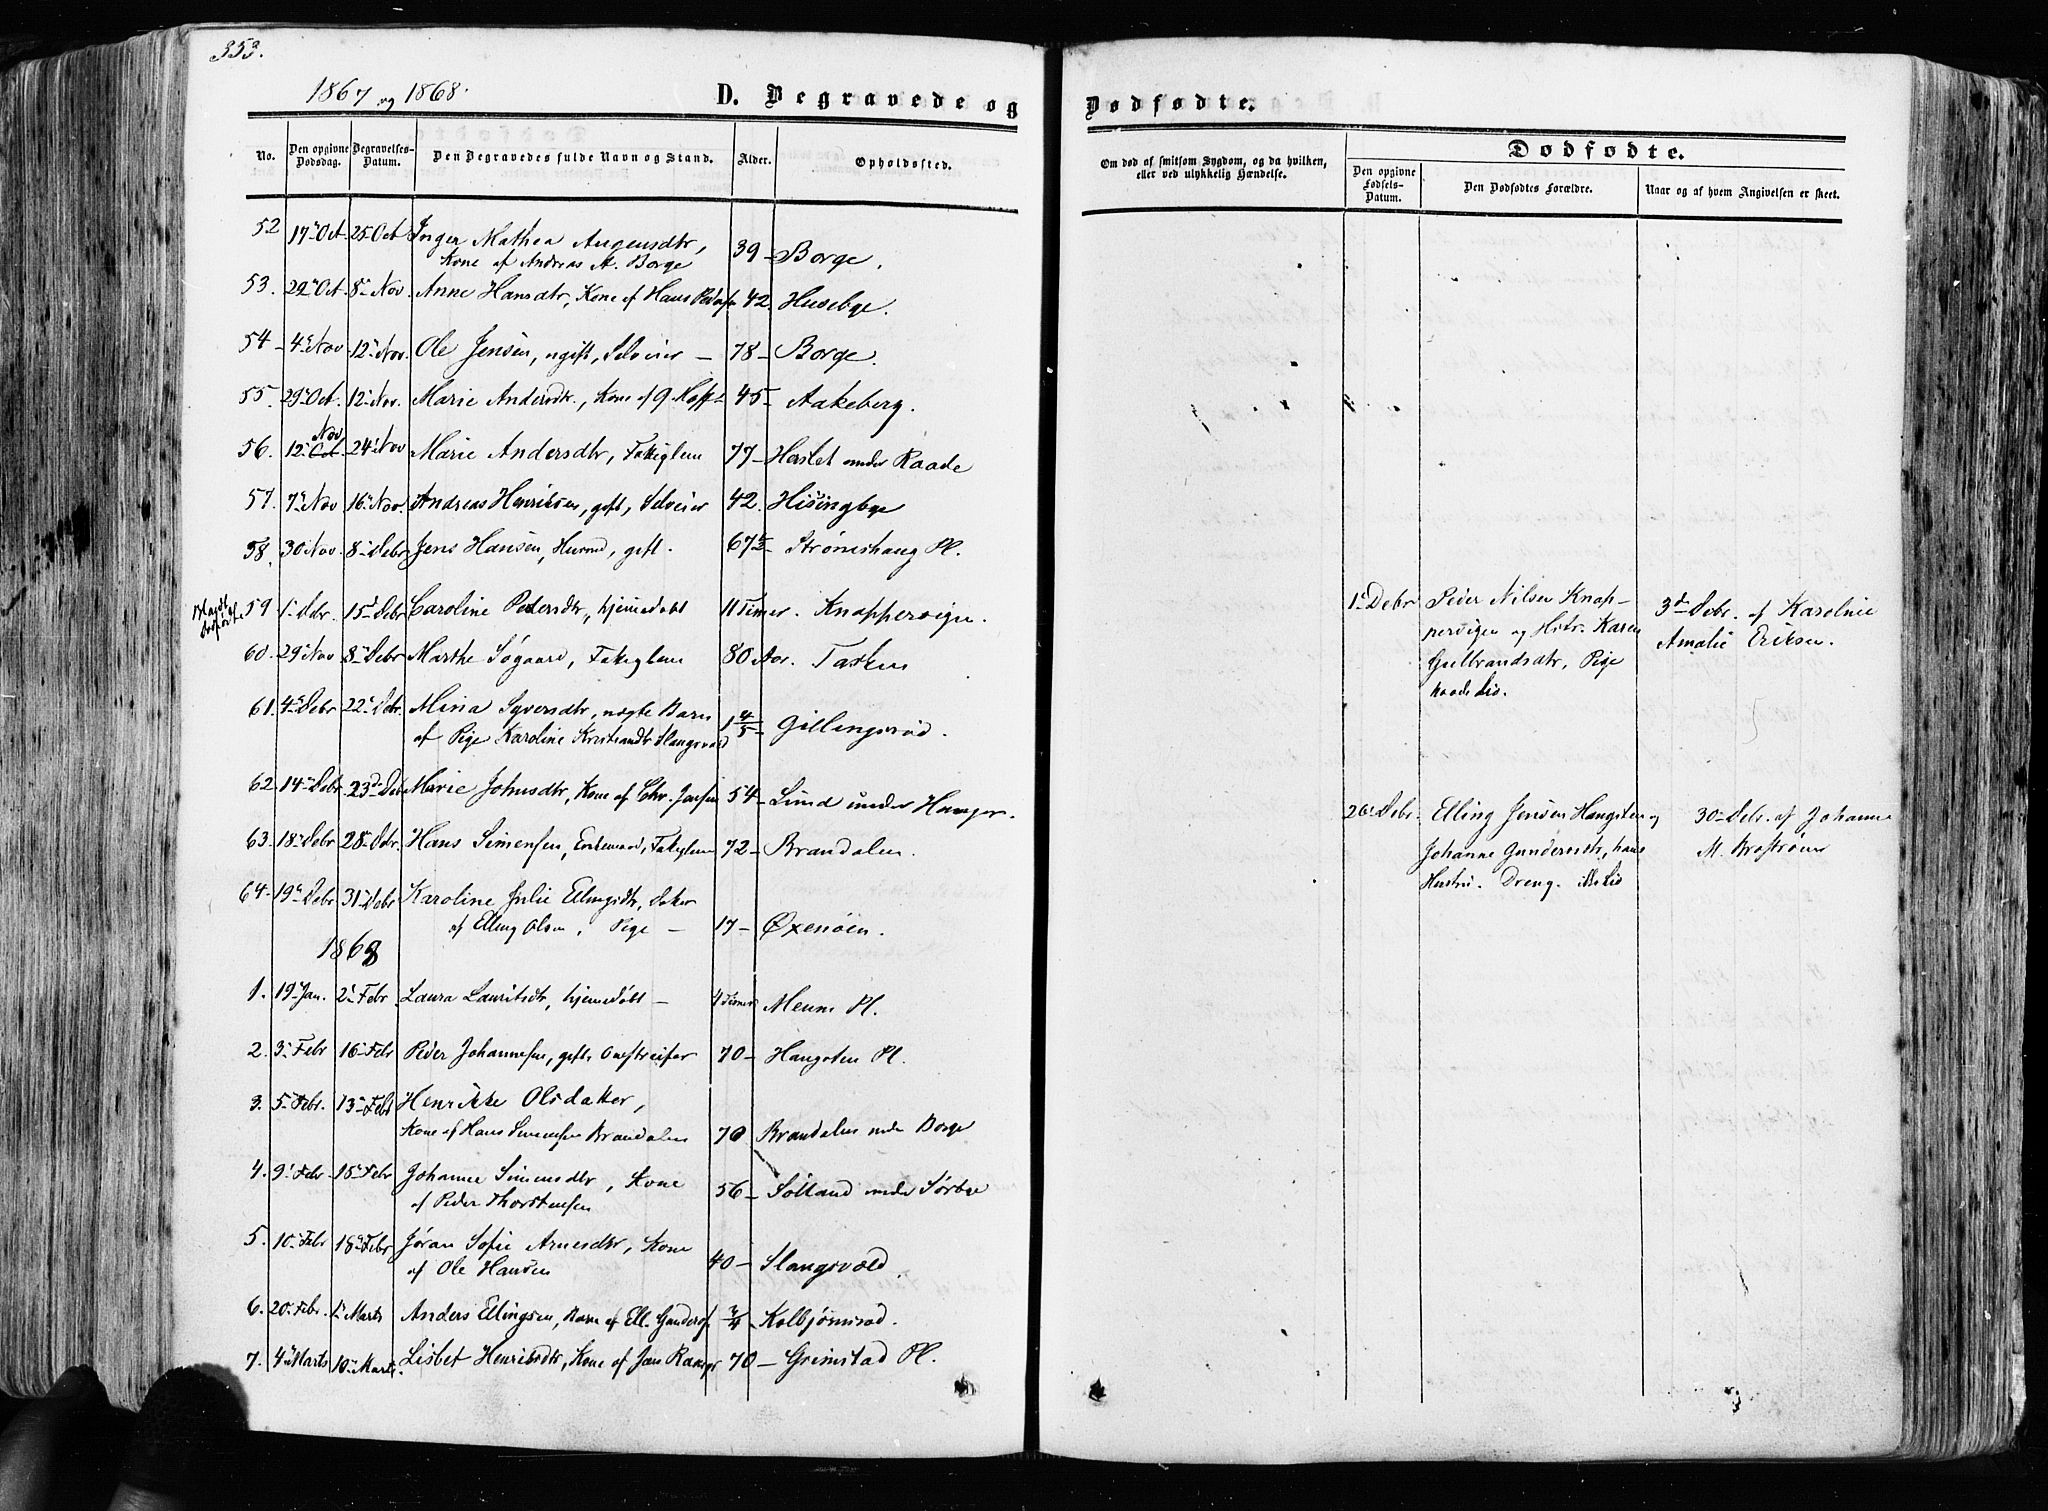 353.
1867 og 1868.
D. Begravede og Dødfødte.
No. Den opgivne Dødsdag. Begravelses-Datum. Den Begravedes fulde Navn og Stand. Alder. Opholdssted.
Om død af smitsom Sygdom, og da hvilken, eller ved ulykkelig Hændelse.
Dødfødte.
Den opgivne Fødsels-Datum. Den Dødfødtes Forældre. Naar og af hvem Angivelsen er skeet.
52 17 Oct 25 Oct Inger Mathea Augensdtr,
Kone af Andreas A. Borge 39 - Borge.
53. 29 Oct 8 Nov. Anne Hansdtr, Kone af Hans 42 Husebye.
54 - 4 Nov 12 Nov. Ole Jensen, ugift, Selveier - 78 - Borge.
55. 29 Oct. 12 Nov. Marie Andersdtr., Kone af 45 - Aakeberg.
Nov
56. 12 Oct. 24 Nov Marie Andersdtr, Fattiglem 77 - Herslet under Raade
57. 7 Nov 16 Nov. Andreas Henriksen, gift, Selveier 42. Hisingbye
58. 30 Nov. 8 Debr Jens Hansen, Husmd, gift. 67 Strømshaug Pl.
59 1 Debr. 15 Debr Caroline Pedersdtr, hjemmedøbt 11 Timer. Knappervigen.
60. 29 Nov 8 Debr Marthe Søgaard, Fattiglem 80 Aar. Tasken
61. 4 Debr 22 Debr. Mina Syversdtr, uægte Barn
af Pige Karoline Slangsvold 1 4/5 - Gillingsrød.
62. 14 Debr 23 Deb Marie Johnsdtr, Kone af Chr. Jensen 54 - Lund under Hauger.
63. 18 Debr 28 Debr. Hans Simensen, Enkemand, Fattiglem 72 - Brandalen.
64. 19 Debr 31 Debr Karoline Julie Ellingsdtr, Datter
af Elling Olsen, Pige - 17 - Øxenøen.
1868
1. 19 Jan. 2 Febr Laura Lauritsdtr, hjemmedøbt - 4 Timer Meum Pl.
2. 3 Febr 16 Febr Peder Johannesen, gift, 70 - Haugsten Pl.
3. 5 Febr. 13 Febr Henrikke Olsdatter,
Kone af Hans Simensen Brandalen 70 Brandalen under Borge
4. 9 Febr 15 Febr Johanne Simensdtr, Kone
af Peder Thorstensen 56 - Solland under Sørbye
5. 10 Febr 18 Febr Jøran Sofie Arnesdtr, Kone
af Ole Hansen 40 - Slangsvold.
6. 20 Febr. 1 Marts Anders Ellingsen, Barn af Ell. Gunders. 3/4 Kolbjørnsrød.
7. 4 Marts 10 Marts. Lisbet Henriksdtr, Kone af 70 - Grimstad Pl.
1 Debr Peder Nilsen Knap-
pervigen og Hstr. Karen
Gulbrandsdtr, Pige
havde Liv.
3die Debr. af Karoline
Amalie Eriksen.
26 Debr. Elling Jensen Haugsten og
Johanne Gundersdtr, hans
Hustru. Dreng. ikke Liv
30 Debr. af Johanne
M. Brostrøm